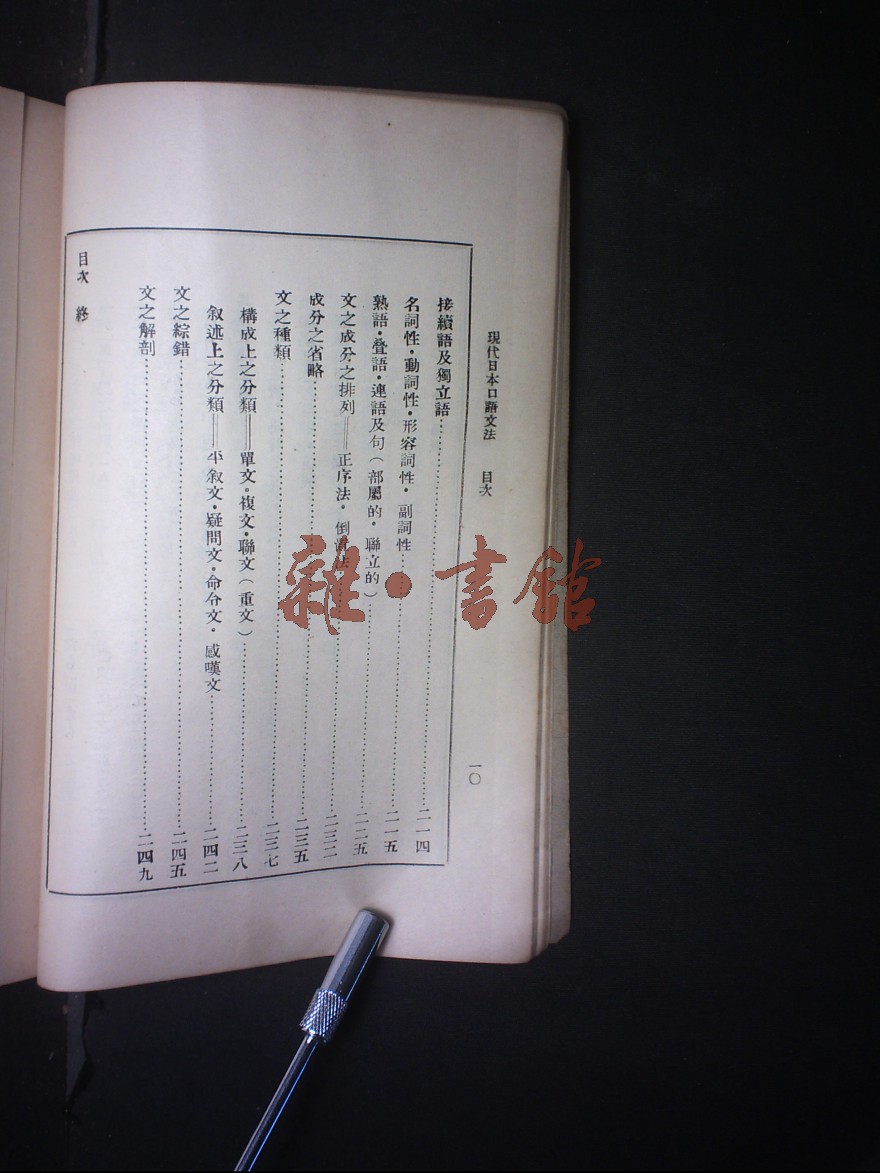 現代日本口語文法　目次
一〇
接續語及獨立語…………二一四
名詞性・動詞性・形容詞性・副詞性…………二一五
熟語・疊語・連語及句(部屬的・聯立的)…………二二五
文之成分之排列——正序法・倒置法…………二三二
成分之省略…………二三五
文之種類…………二三七
構成上之分類——單文。複文・聯文(重文)…………二三八
叙述上之分類——平叙文・疑問文・命令文・感嘆文…………二四二
文之綜錯…………二四五
文之解剖…………二四九
目次　終
雜・書館